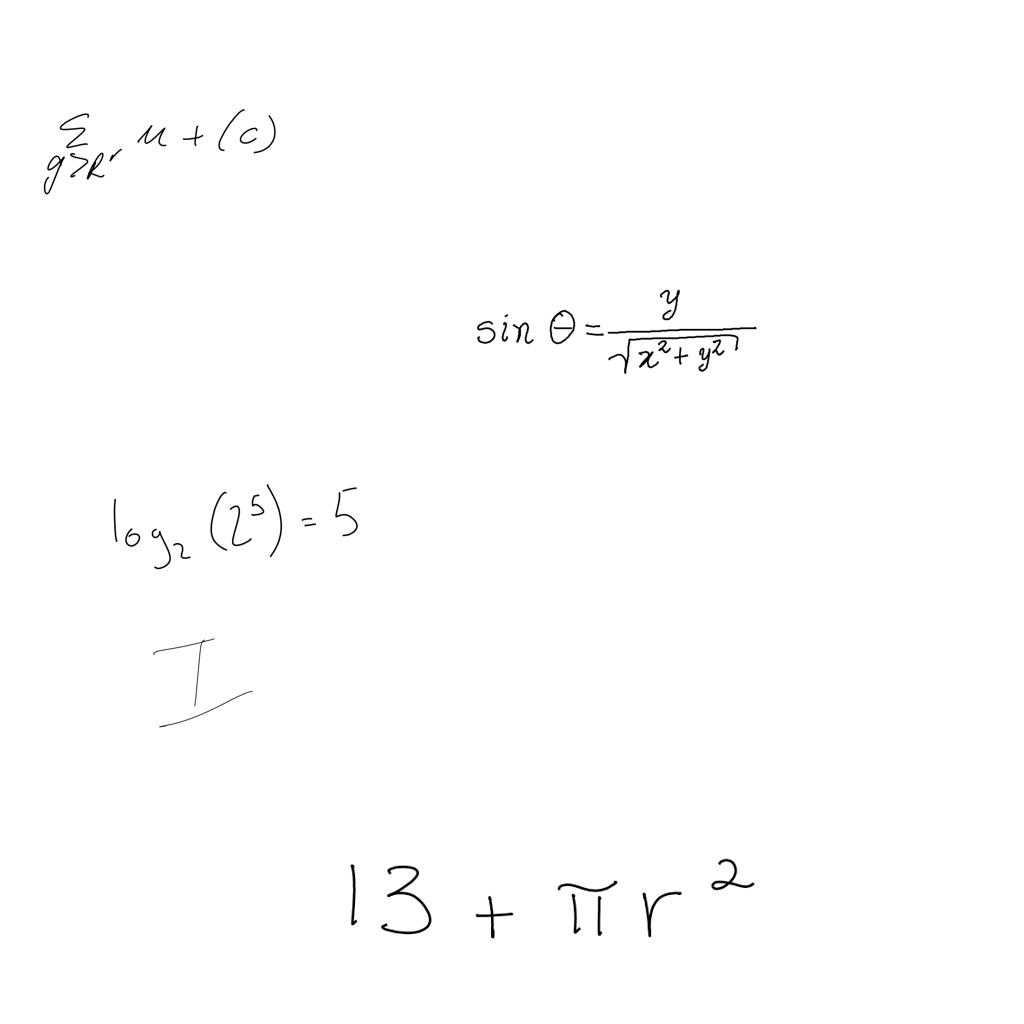 \sum_{g > R^r} u + (c)
\sin \theta = \frac{y}{\sqrt{x^2 + y^2}}
\log_2 (2^5) = 5
I
13 + \pi r^2